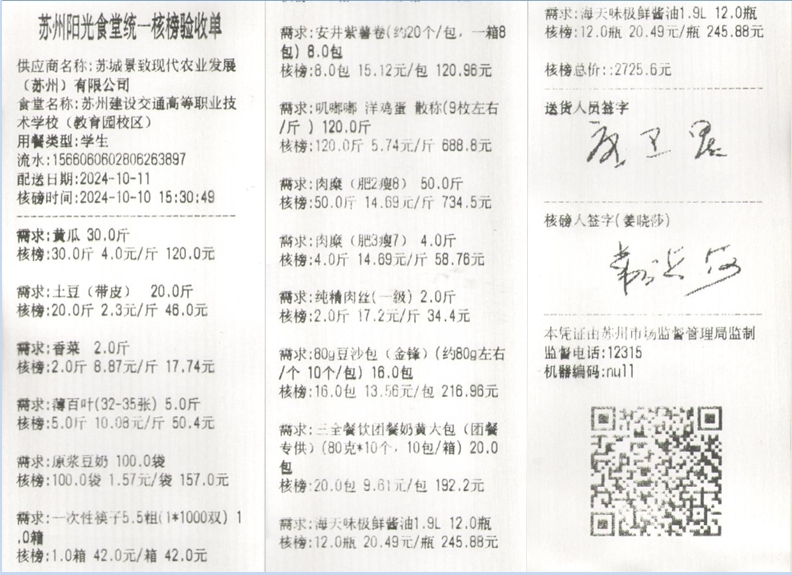 苏州阳光食堂统一核榜验收单
供应商名称:苏城景致现代农业发展
（苏州）有限公司
食堂名称:苏州建设交通高等职业技
术学校（教育园校区）
用餐类型:学生
流水:1566060602806263897
配送日期:2024-10-11
核磅时间:2024-10-10 15:30:49
需求:黄瓜 30.0斤
核榜:30.0斤 4.0元/斤 120.0元
需求:土豆（带皮） 20.0斤
核榜:20.0斤 2.3元/斤 46.0元
需求:香菜 2.0斤
核榜:2.0斤 8.87元/斤 17.74元
需求:薄百叶(32-35张) 5.0斤
核榜:5.0斤 10.08元/斤 50.4元
需求:原浆豆奶 100.0袋
核榜:100.0袋 1.57元/袋 157.0元
需求:一次性筷子5.5粗(1*1000双) 1
.0箱
核榜:1.0箱 42.0元/箱 42.0元
需求:安井紫薯卷(约20个/包，一箱8
包) 8.0包
核榜:8.0包 15.12元/包 120.96元
需求:叽嘟嘟 洋鸡蛋 散称(9枚左右
/斤 ) 120.0斤
核榜:120.0斤 5.74元/斤 688.8元
需求:肉糜（肥2瘦8） 50.0斤
核榜:50.0斤 14.69元/斤 734.5元
需求:肉糜（肥3瘦7） 4.0斤
核榜:4.0斤 14.69元/斤 58.76元
需求:纯精肉丝(一级) 2.0斤
核榜:2.0斤 17.2元/斤 34.4元
需求:80g豆沙包（金锋）(约80g左右
/个 10个/包) 16.0包
核榜:16.0包 13.56元/包 216.96元
需求:三全餐饮团餐奶黄大包（团餐
专供）(80克*10个，10包/箱) 20.0
包
核榜:20.0包 9.61元/包 192.2元
需求:海天味极鲜酱油1.9L 12.0瓶
核榜:12.0瓶 20.49元/瓶 245.88元
需求:海天味极鲜酱油1.9L 12.0瓶
核榜:12.0瓶 20.49元/瓶 245.88元
核榜总价::2725.6元
送货人员签字
核磅人签字(姜晓莎)
本凭证由苏州市场监督管理局监制
监督电话:12315
机器编码:null